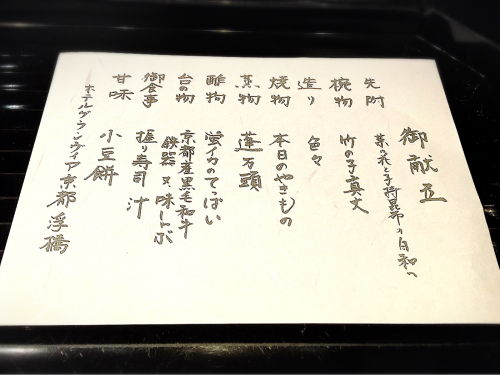 御献立
先附 菜の花と子持昆布の白和へ
椀物 竹の子真丈
造り 色々
焼物 本日のやきもの
蒸物 蓬万頭
酢物 蛍イカのてっぱい
台の物 京都産黒毛和牛
味しゃぶ
御食事 握り寿司 汁
甘味 小豆餅
ホテルグランヴィア京都 浮橋